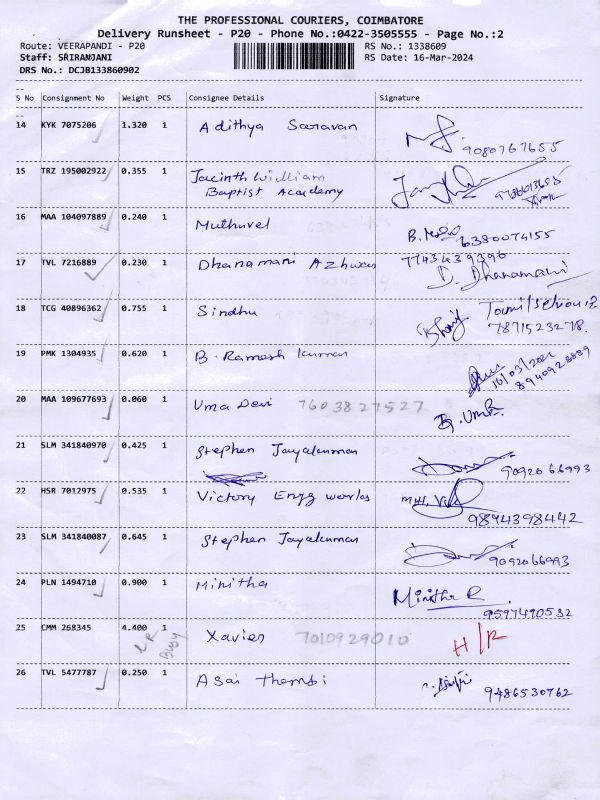 THE PROFESSIONAL COURIERS, COIMBATORE
Delivery Runsheet - P20 - Phone No.:0422-3505555 - Page No.:2
Route: VEERAPANDI - P20 RS No.: 1338609
Staff: SRIRANJANI RS Date: 16-Mar-2024
DRS No.: DCJB133860902
S No Consignment No Weight PCS Consignee Details Signature
14 KYK 7075206 1.320 1 Adithya Saravan
9080767655
15 TRZ 195002922 0.355 1 Jacinth William
Baptist Academy
16 MAA 104097889 0.240 1 Muthuvel
6380074155
17 TVL 7216889 0.230 1 Dhanamani Azhwar 7743439396
D. Dhanamani
18 TCG 40896362 0.755 1 Sindhu
7871523278.
19 PMK 1304935 0.620 1 B. Ramesh kumar
16/03/2024
8940928889
20 MAA 109677693 0.060 1 Uma Devi 7603827527
B. Uma
21 SLM 341840970 0.425 1 Stephen Jayakumar
9092066993
22 HSR 7012975 0.535 1 Victory Engg works
9894398442
23 SLM 341840087 0.645 1 Stephen Jayakumar
9092066993
24 PLN 1494710 0.900 1 Minitha Minitha R
9597490532
25 CMM 268345 4.400 1 Xavier 7010929010 H/R
LR Busy
26 TVL 5477787 0.250 1 Asai Thambi
9486530762